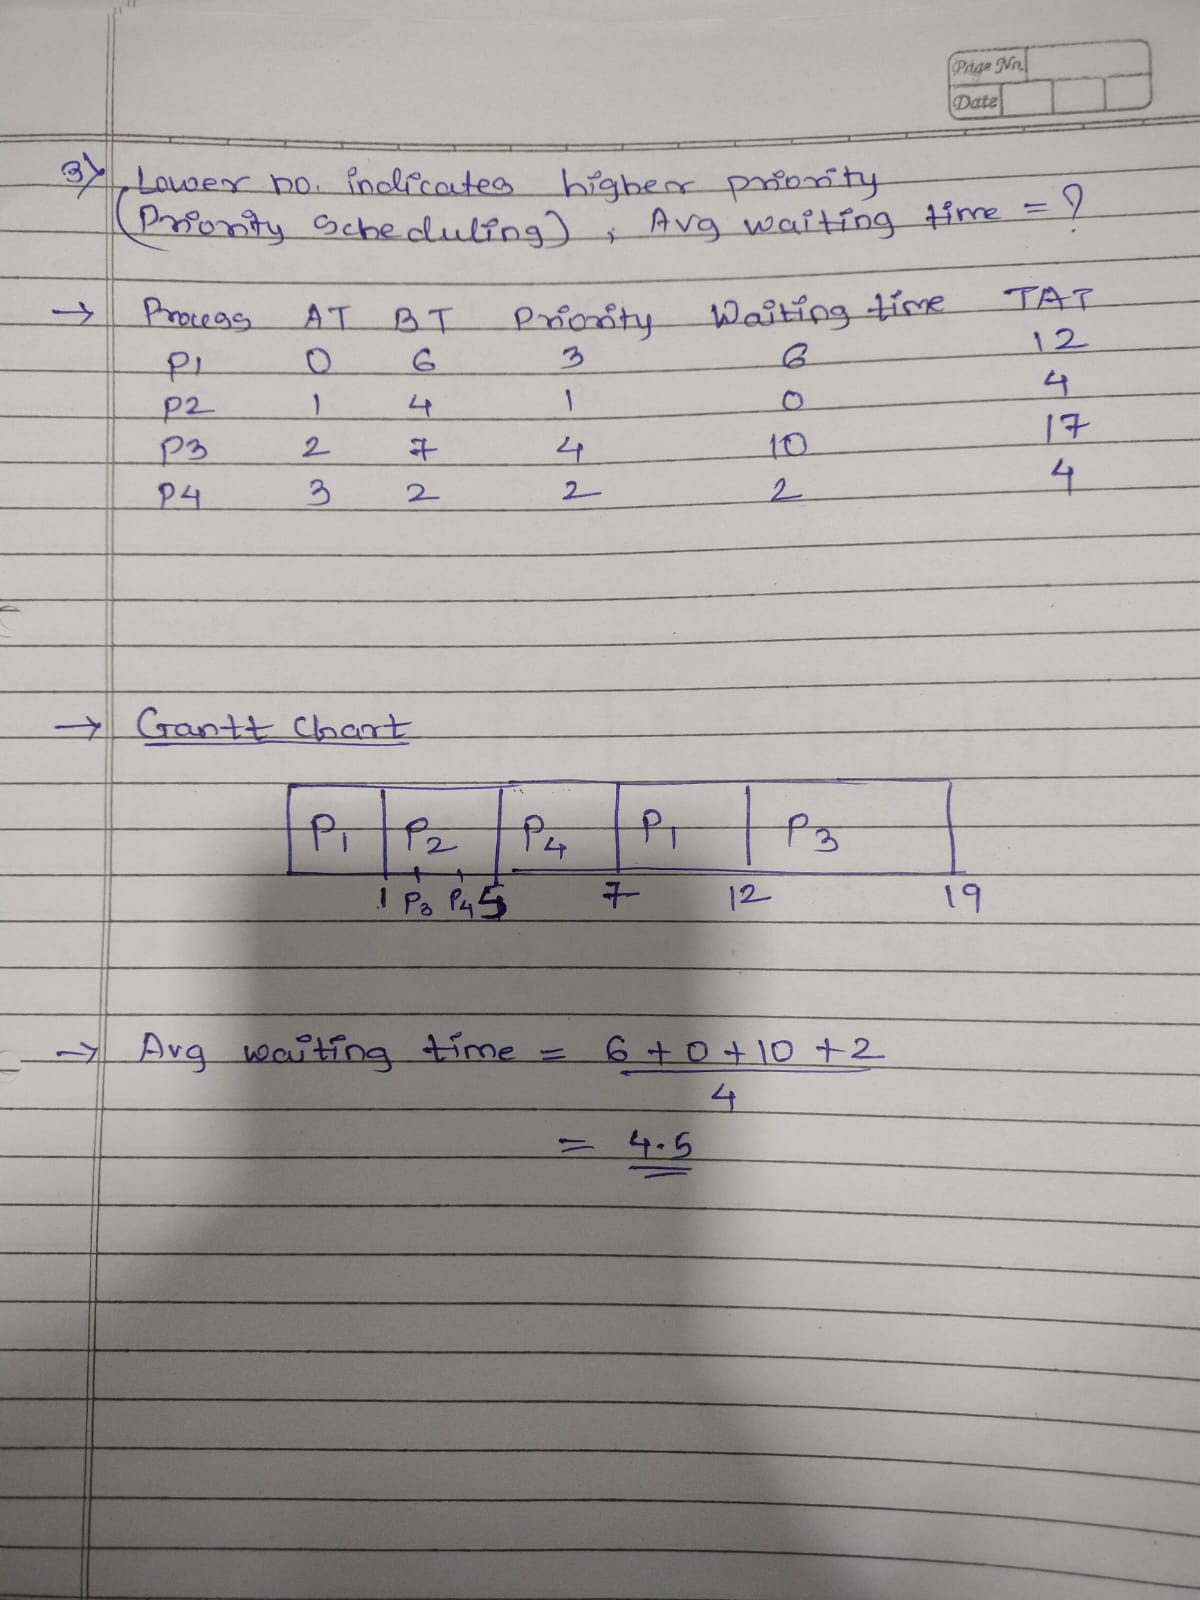 Page No.
Date
3) Lower no. indicates higher priority
(Priority Scheduling) ; Avg waiting time = ?
→ Process AT BT Priority Waiting time TAT
P1 0 6 3 6 12
P2 1 4 1 0 4
P3 2 7 4 10 17
P4 3 2 2 2 4
→ Gantt Chart
P1 P2 P4 P1 P3
1 P3 P4 5 7 12 19
→ Avg waiting time = 6 + 0 + 10 + 2
4
= 4.5